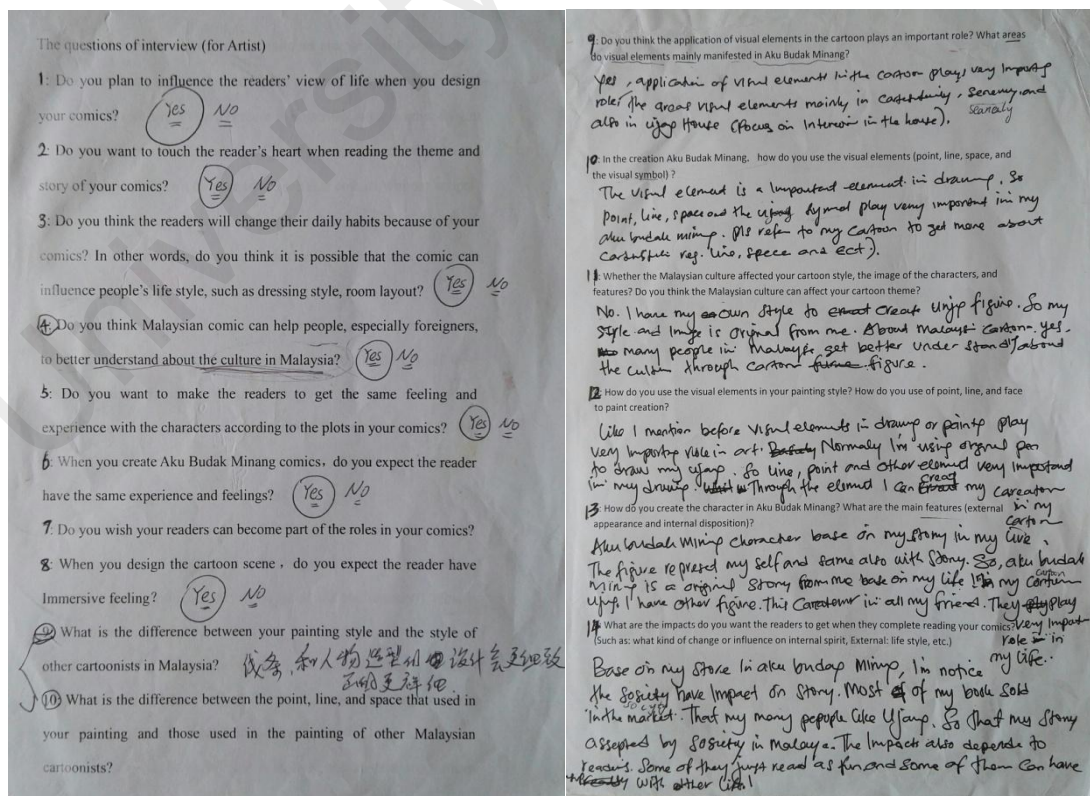 University
The questions of interview (for Artist)
1: Do you plan to influence the readers' view of life when you design
your comics? Yes No
2: Do you want to touch the reader's heart when reading the theme and
story of your comics? Yes No
3: Do you think the readers will change their daily habits because of your
comics? In other words, do you think it is possible that the comic can
influence people's life style, such as dressing style, room layout? Yes No
4: Do you think Malaysian comic can help people, especially foreigners,
to better understand about the culture in Malaysia? Yes No
5: Do you want to make the readers to get the same feeling and
experience with the characters according to the plots in your comics? Yes No
6: When you create Aku Budak Minang comics, do you expect the reader
have the same experience and feelings? Yes No
7: Do you wish your readers can become part of the roles in your comics?
8: When you design the cartoon scene, do you expect the reader have
Immersive feeling? Yes No
9 What is the difference between your painting style and the style of
other cartoonists in Malaysia? 线条,和人物造型的设计会更细致
画的更详细
10 What is the difference between the point, line, and space that used in
your painting and those used in the painting of other Malaysian
cartoonists?
9: Do you think the application of visual elements in the cartoon plays an important role? What areas
do visual elements mainly manifested in Aku Budak Minang?
Yes, application of visual elements in the cartoon plays very importg
role. The areas visual elements mainly in, and
also in ujang House (focus on Interior in the house).
10: In the creation Aku Budak Minang. how do you use the visual elements (point, line, space, and
the visual symbol) ?
The visual element is a important element in drawing. So
point, line, space and the symbol play very important in my
aku budak minang. Pls refer to my cartoon to get more about
reg. line, spece and ect).
11: Whether the Malaysian culture affected your cartoon style, the image of the characters, and
features? Do you think the Malaysian culture can affect your cartoon theme?
No. I have my own style to creat figure. So my
style and Image is original from me. About malaysi cartoon. yes.
many people in malaysi get better under stand about
the cultur through cartoon figure.
12: How do you use the visual elements in your painting style? How do you use of point, line, and face
to paint creation?
Like I mention before visual elements in drawing or paintg play
very importg role in art. Normaly I'm using original pen
to draw my ujang. So line, point and other elemend very importand
in my drawing. Through the elemend I can creat my
13: How do you create the character in Aku Budak Minang? What are the main features (external in my
appearance and internal disposition)? cartoon
Aku budak Minang character base on my story in my live.
The figure represd my self and same also with story. So, aku budak
Ming is a original story from me base on my life In my cartoon
ujang I have other figure. This in all my friend. They play
14 What are the impacts do you want the readers to get when they complete reading your comics? very impart
(Such as: what kind of change or influence on internal spirit, External: life style, etc.) role in
my life..
Base on my store In aku budap Minang, I'm notice
the sosiety have Impact on story. Most of my book sold
in the market. That my many pepuple like Ujang. So that my story
assepted by sosiety in malaya. The Impacts also depende to
readers. Some of they just read as fun and some of them can have
with other